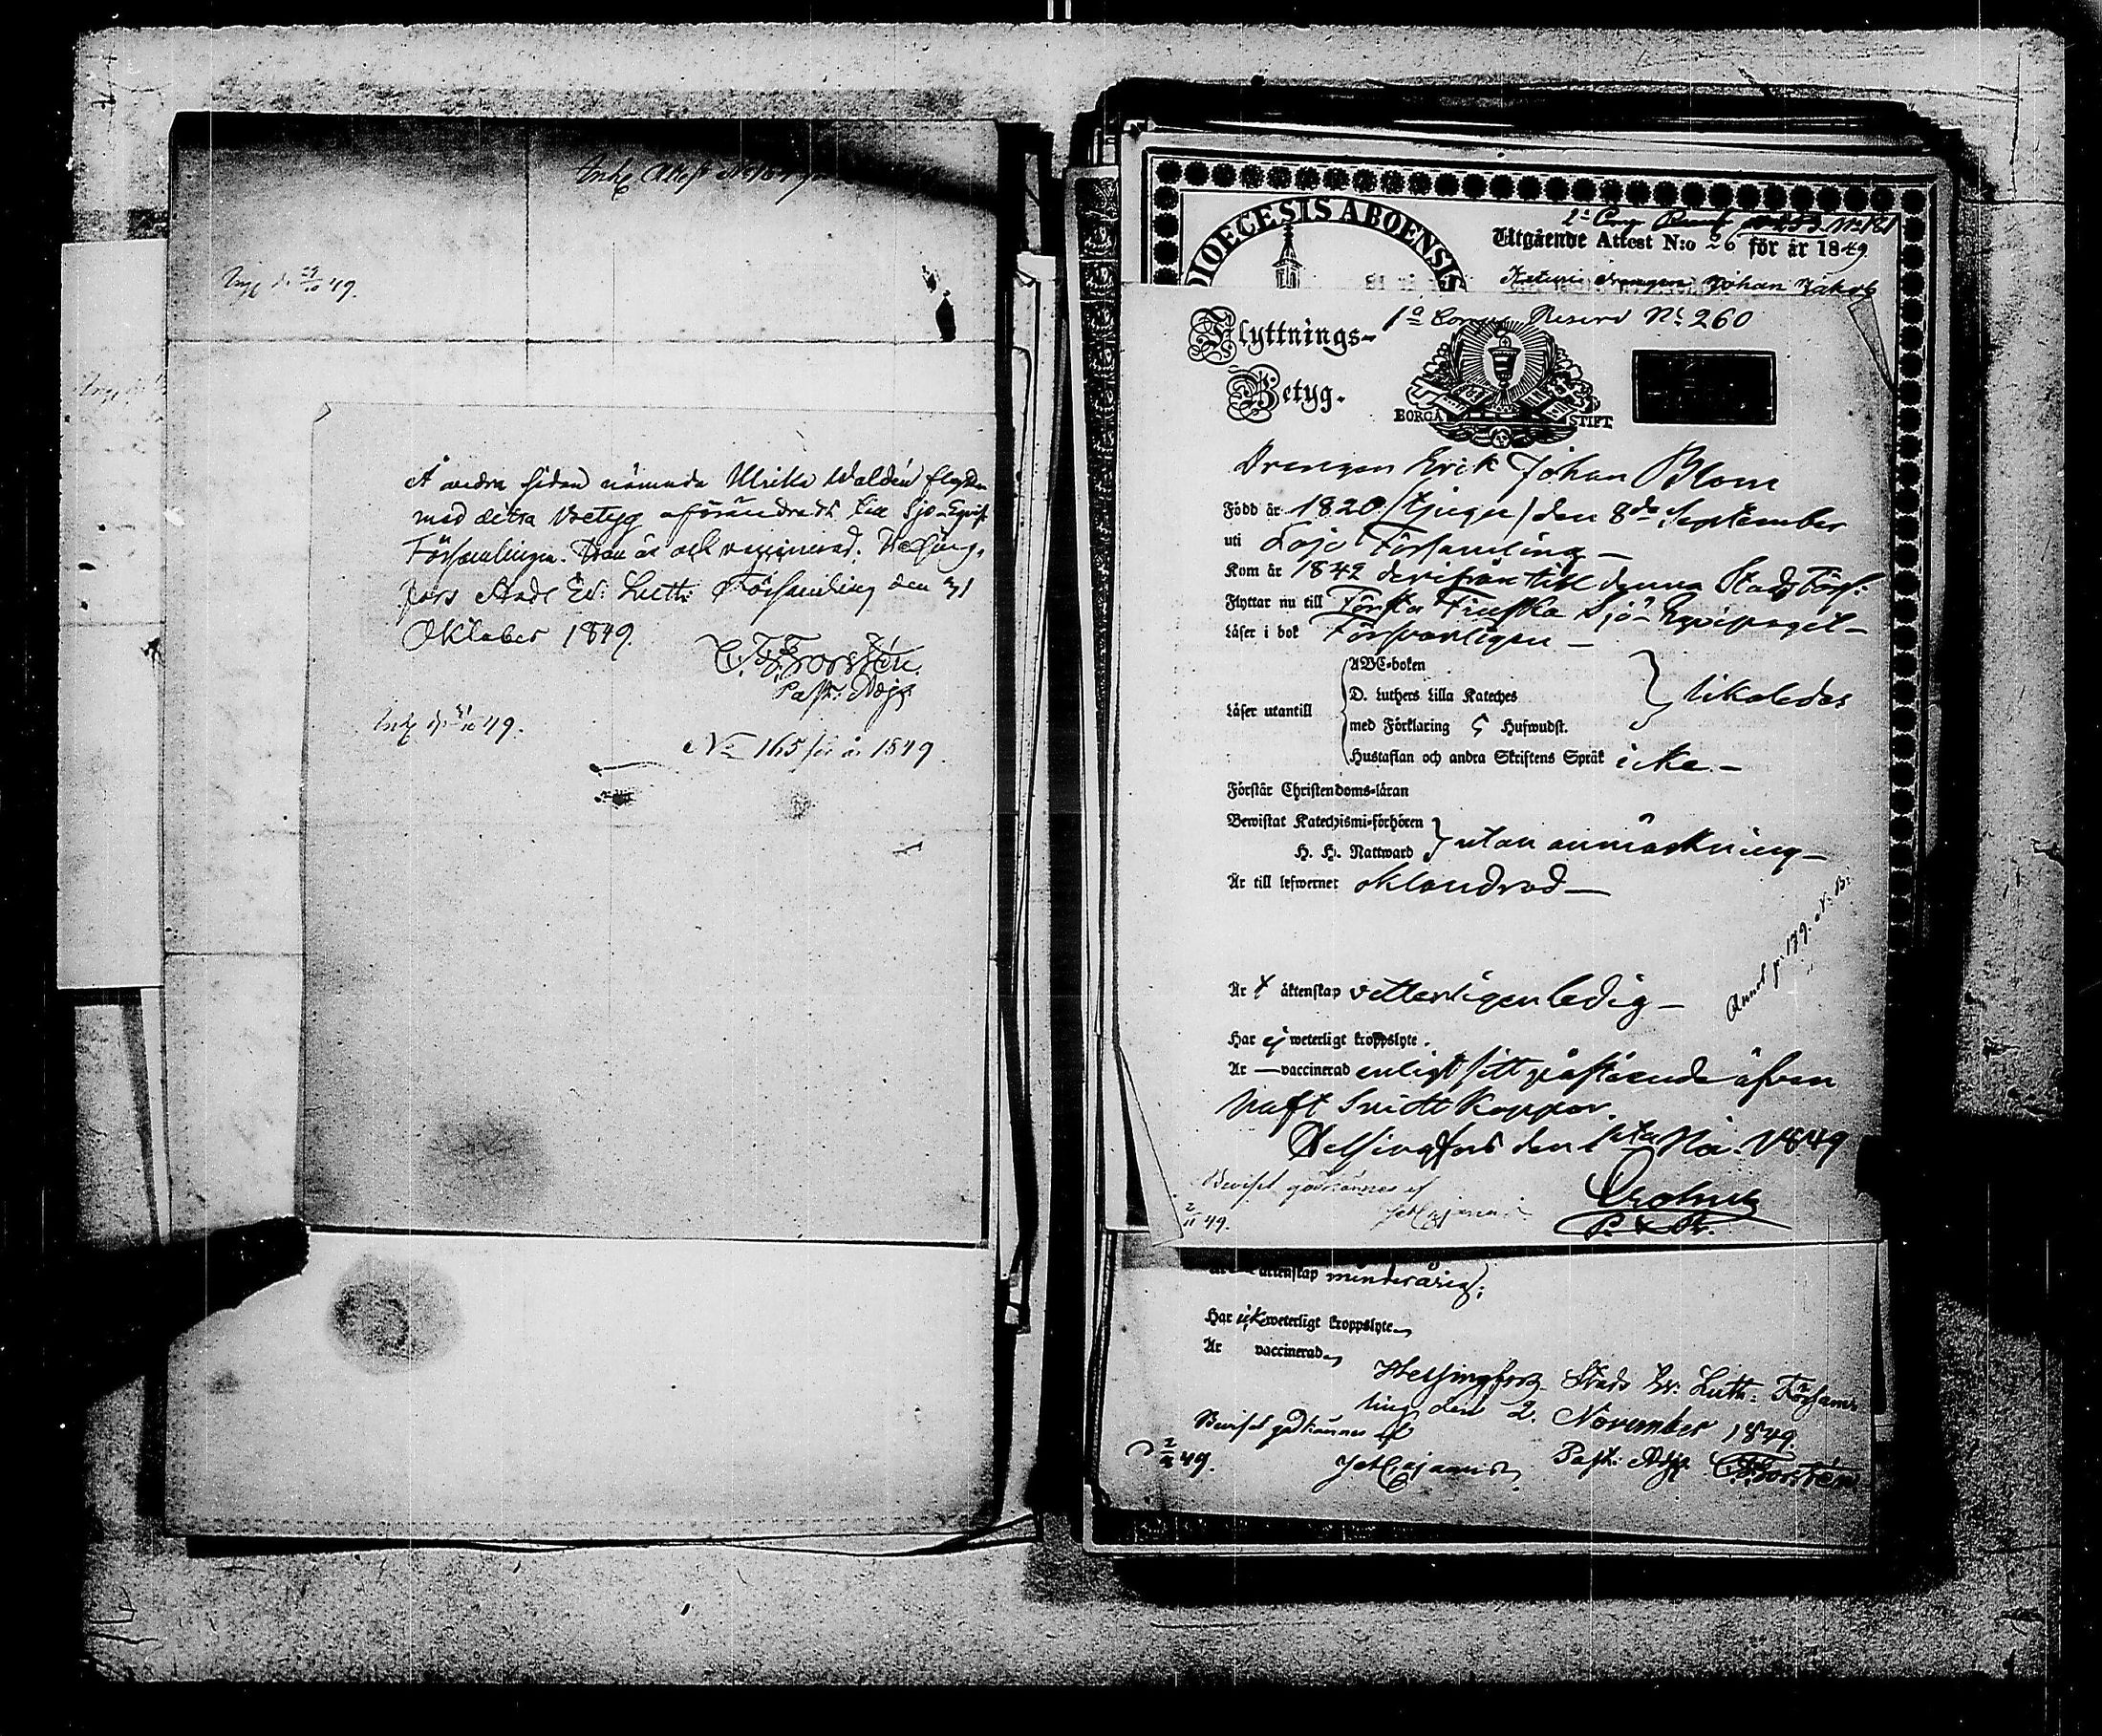 Ink. Attest No 164
Ink. d. 29/10 49.
Å andra sidan nämnda Ulrika Waldén flyttar
med detta betyg oförändradt till Sjö-Equip.
Församlingen. Hon är ock vaccinerad. Helsing-
fors Stads Ev: Luth: Församling den 31
Oktober 1849.
C. F. Forstén
Past: Adj:
Ink. d. 31/10 49.
No 165 för år 1849.
DIOECESIS ABOENSIS
Utgående Attest N:o 26 för år 1849
Johan Jakob
1a Reserv No 260
Flyttnings-
Betyg.
BORGÅ STIFT
Drengen Erik Johan Blom
Född år 1820 /tjugu/ den 8de September
uti Lojo Församling —
Kom år 1842 derifrån till denna Stads Förs:
Flyttar nu till Första Finska Sjö-Equipaget —
Läser i bok Försvarligen —
ABC-boken
D. Luthers Lilla Kateches
Läser utantill
med Förklaring 5 Hufwudst.
likaledes
Hustaflan och andra Skriftens Språk icke —
Förstår Christendoms-läran
Bewistat Katechismi-förhören
H. H. Nattward
utan anmärkning —
Är till lefwernet oklandrad —
Annot p. 179.
Är t äktenskap vetterligen ledig —
Har ej weterligt kroppslyte.
Är — vaccinerad enligt sitt påstående äfven
haft Smitt Koppor
Helsingfors den 1sta No. 1849
Beviset godkännes af
2/11 49.
äktenskap minderårig;
Har icke weterligt kroppslyte
Är vaccinerad
Helsingfors Stads Ev: Luth: Försam-
ling den 2. November 1849.
Beviset godkännes af
2/11 49.
Past: Adj: C F Forstén